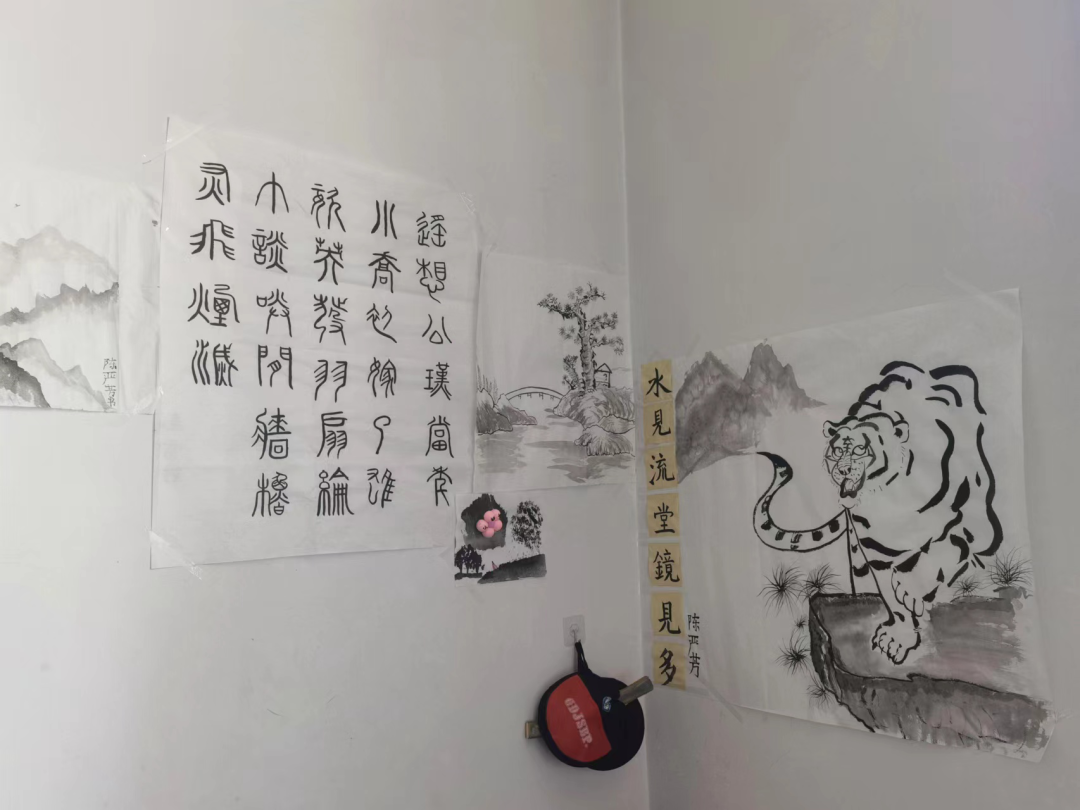 遥想公瑾當年
小喬初嫁了雄
姿英發羽扇綸
巾談笑間檣櫓
灰飛煙滅
陈严芳
水見流堂鏡見多
陈严芳
GDJSUP.